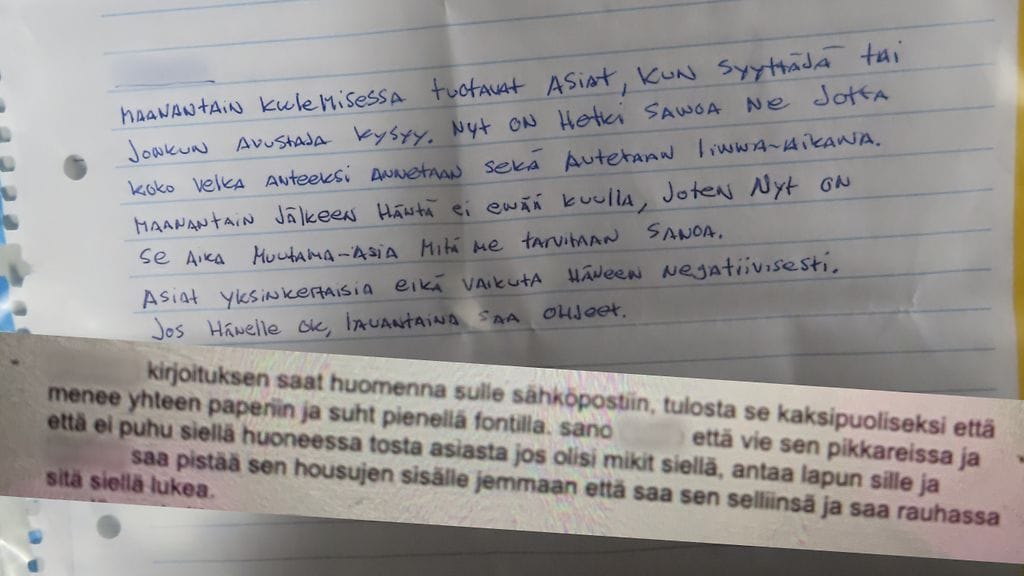 MAANANTAIN KUULEMISESSA TUOTAVAT ASIAT, KUN SYYTTÄJÄ TAI
JONKUN AVUSTAJA KYSYY. NYT ON HETKI SANOA NE JOTTA
KOKO VELKA ANTEEKSI ANNETAAN SEKÄ AUTETAAN LINNA-AIKANA.
MAANANTAIN JÄLKEEN HÄNTÄ EI ENÄÄ KUULLA, JOTEN NYT ON
SE AIKA MUUTAMA-ASIA MITÄ ME TARVITAAN SANOA.
ASIAT YKSINKERTAISIA EIKÄ VAIKUTA HÄNEEN NEGATIIVISESTI.
JOS HÄNELLE OK, LAUANTAINA SAA OHJEET.
kirjoituksen saat huomenna sulle sähköpostiin, tulosta se kaksipuoliseksi että
menee yhteen paperiin ja suht pienellä fontilla. sano että vie sen pikkareissa ja
että ei puhu siellä huoneessa tosta asiasta jos olisi mikit siellä, antaa lapun sille ja
saa pistää sen housujen sisälle jemmaan että saa sen selliinsä ja saa rauhassa
sitä siellä lukea.